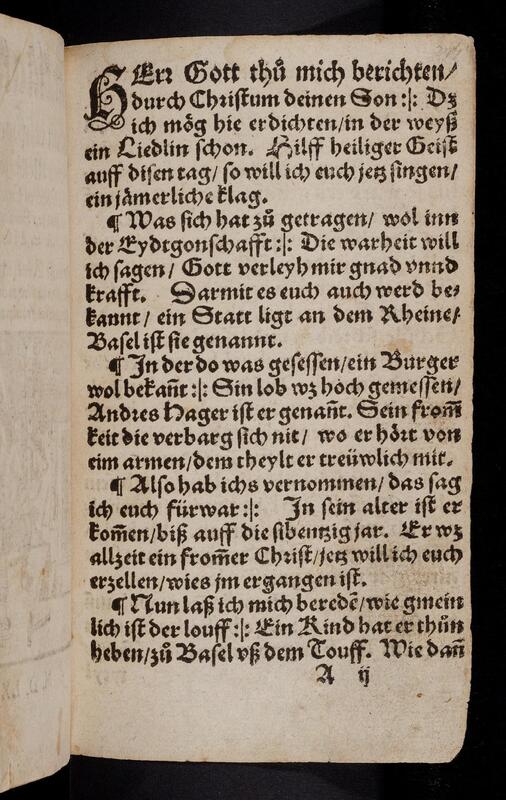 HErr Gott thuͦ mich berichten/
durch Christum deinen Son :|: Dz
ich moͤg hie erdichten/ in der weyß
ein Liedlin schon. Hilff heiliger Geist
auff disen tag/ so will ich euch jetz singen/
ein jaͤmerliche klag.
¶ Was sich hat zuͦ getragen/ wol inn
der Eydtgonschafft :|: Die warheit will
ich sagen/ Gott verleyh mir gnad vnnd
krafft. Darmit es euch auch werd be⸗
kannt/ ein Statt ligt an dem Rheine/
Basel ist sie genannt.
¶ In der do was gesessen/ ein Burger
wol bekañt :|: Sin lob wz hoch gemessen/
Andres Hager ist er genañt. Sein from̃
keit die verbarg sich nit/ wo er hoͤrt von
eim armen/ dem theylt er treüwlich mit.
¶ Also hab ichs vernommen/ das sag
ich euch fürwar :|: In sein alter ist er
kom̃en/ biß auff die sibentzig jar. Er wz
allzeit ein from̃er Christ/ jetz will ich euch
erzellen/ wies jm ergangen ist.
¶ Nun laß ich mich beredẽ/ wie gmein
lich ist der louff :|: Ein Kind hat er thuͦn
heben/ zuͦ Basel vß dem Touff. Wie dañ
A ij